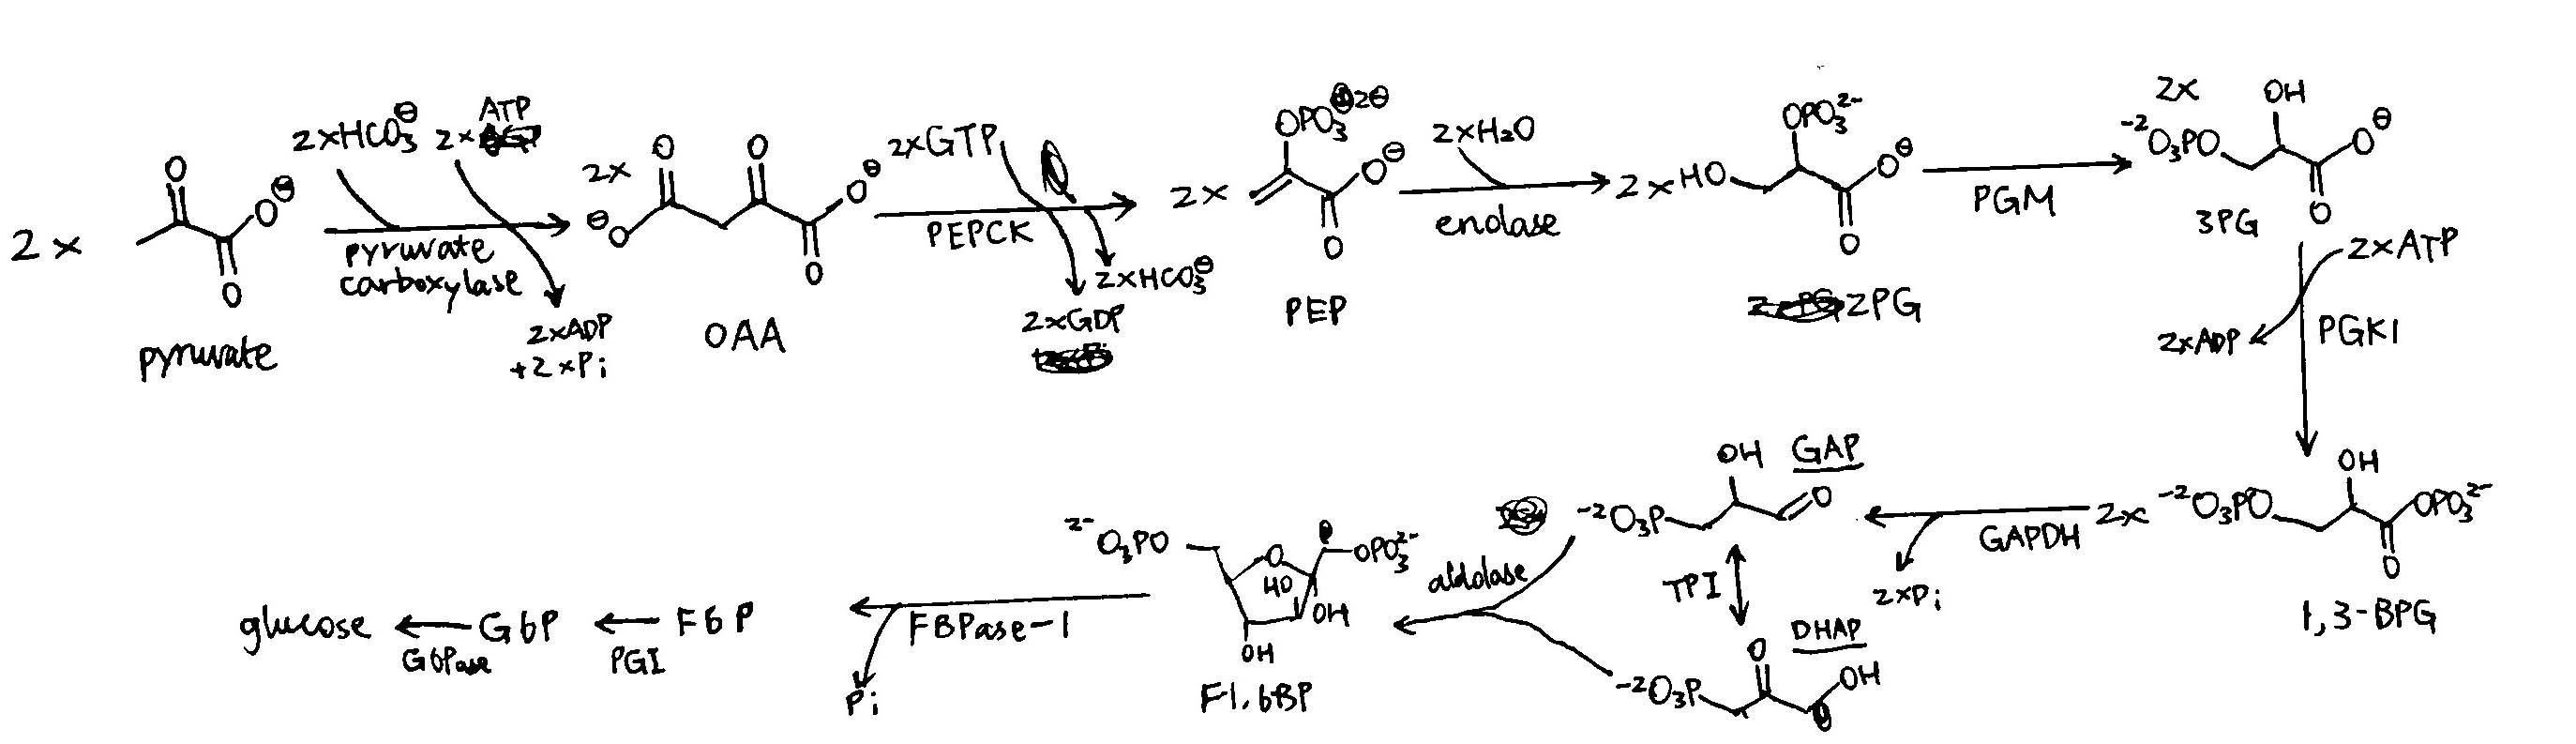 2 x
O
O⊖
O
pyruvate
2xHCO₃⊖
2x ATP
pyruvate
carboxylase
2xADP
+2xPi
2x
O
O
⊖O
O⊖
O
OAA
2xGTP
PEPCK
2xHCO₃⊖
2xGDP
2x
OPO₃2⊖
O⊖
O
PEP
2xH₂O
enolase
2x HO
OPO₃²⁻
O⊖
O
2PG
PGM
2x
OH
⁻²O₃PO
O⊖
O
3PG
2xATP
PGK1
2xADP
OH
2x ⁻²O₃PO
OPO₃²⁻
O
1,3-BPG
GAPDH
2xPi
OH
GAP
⁻²O₃P
O
TPI
DHAP
O
OH
⁻²O₃P
aldolase
²⁻O₃PO
O
OPO₃²⁻
HO
OH
OH
F1,6BP
FBPase-1
Pi
F6P
PGI
G6P
G6Pase
glucose